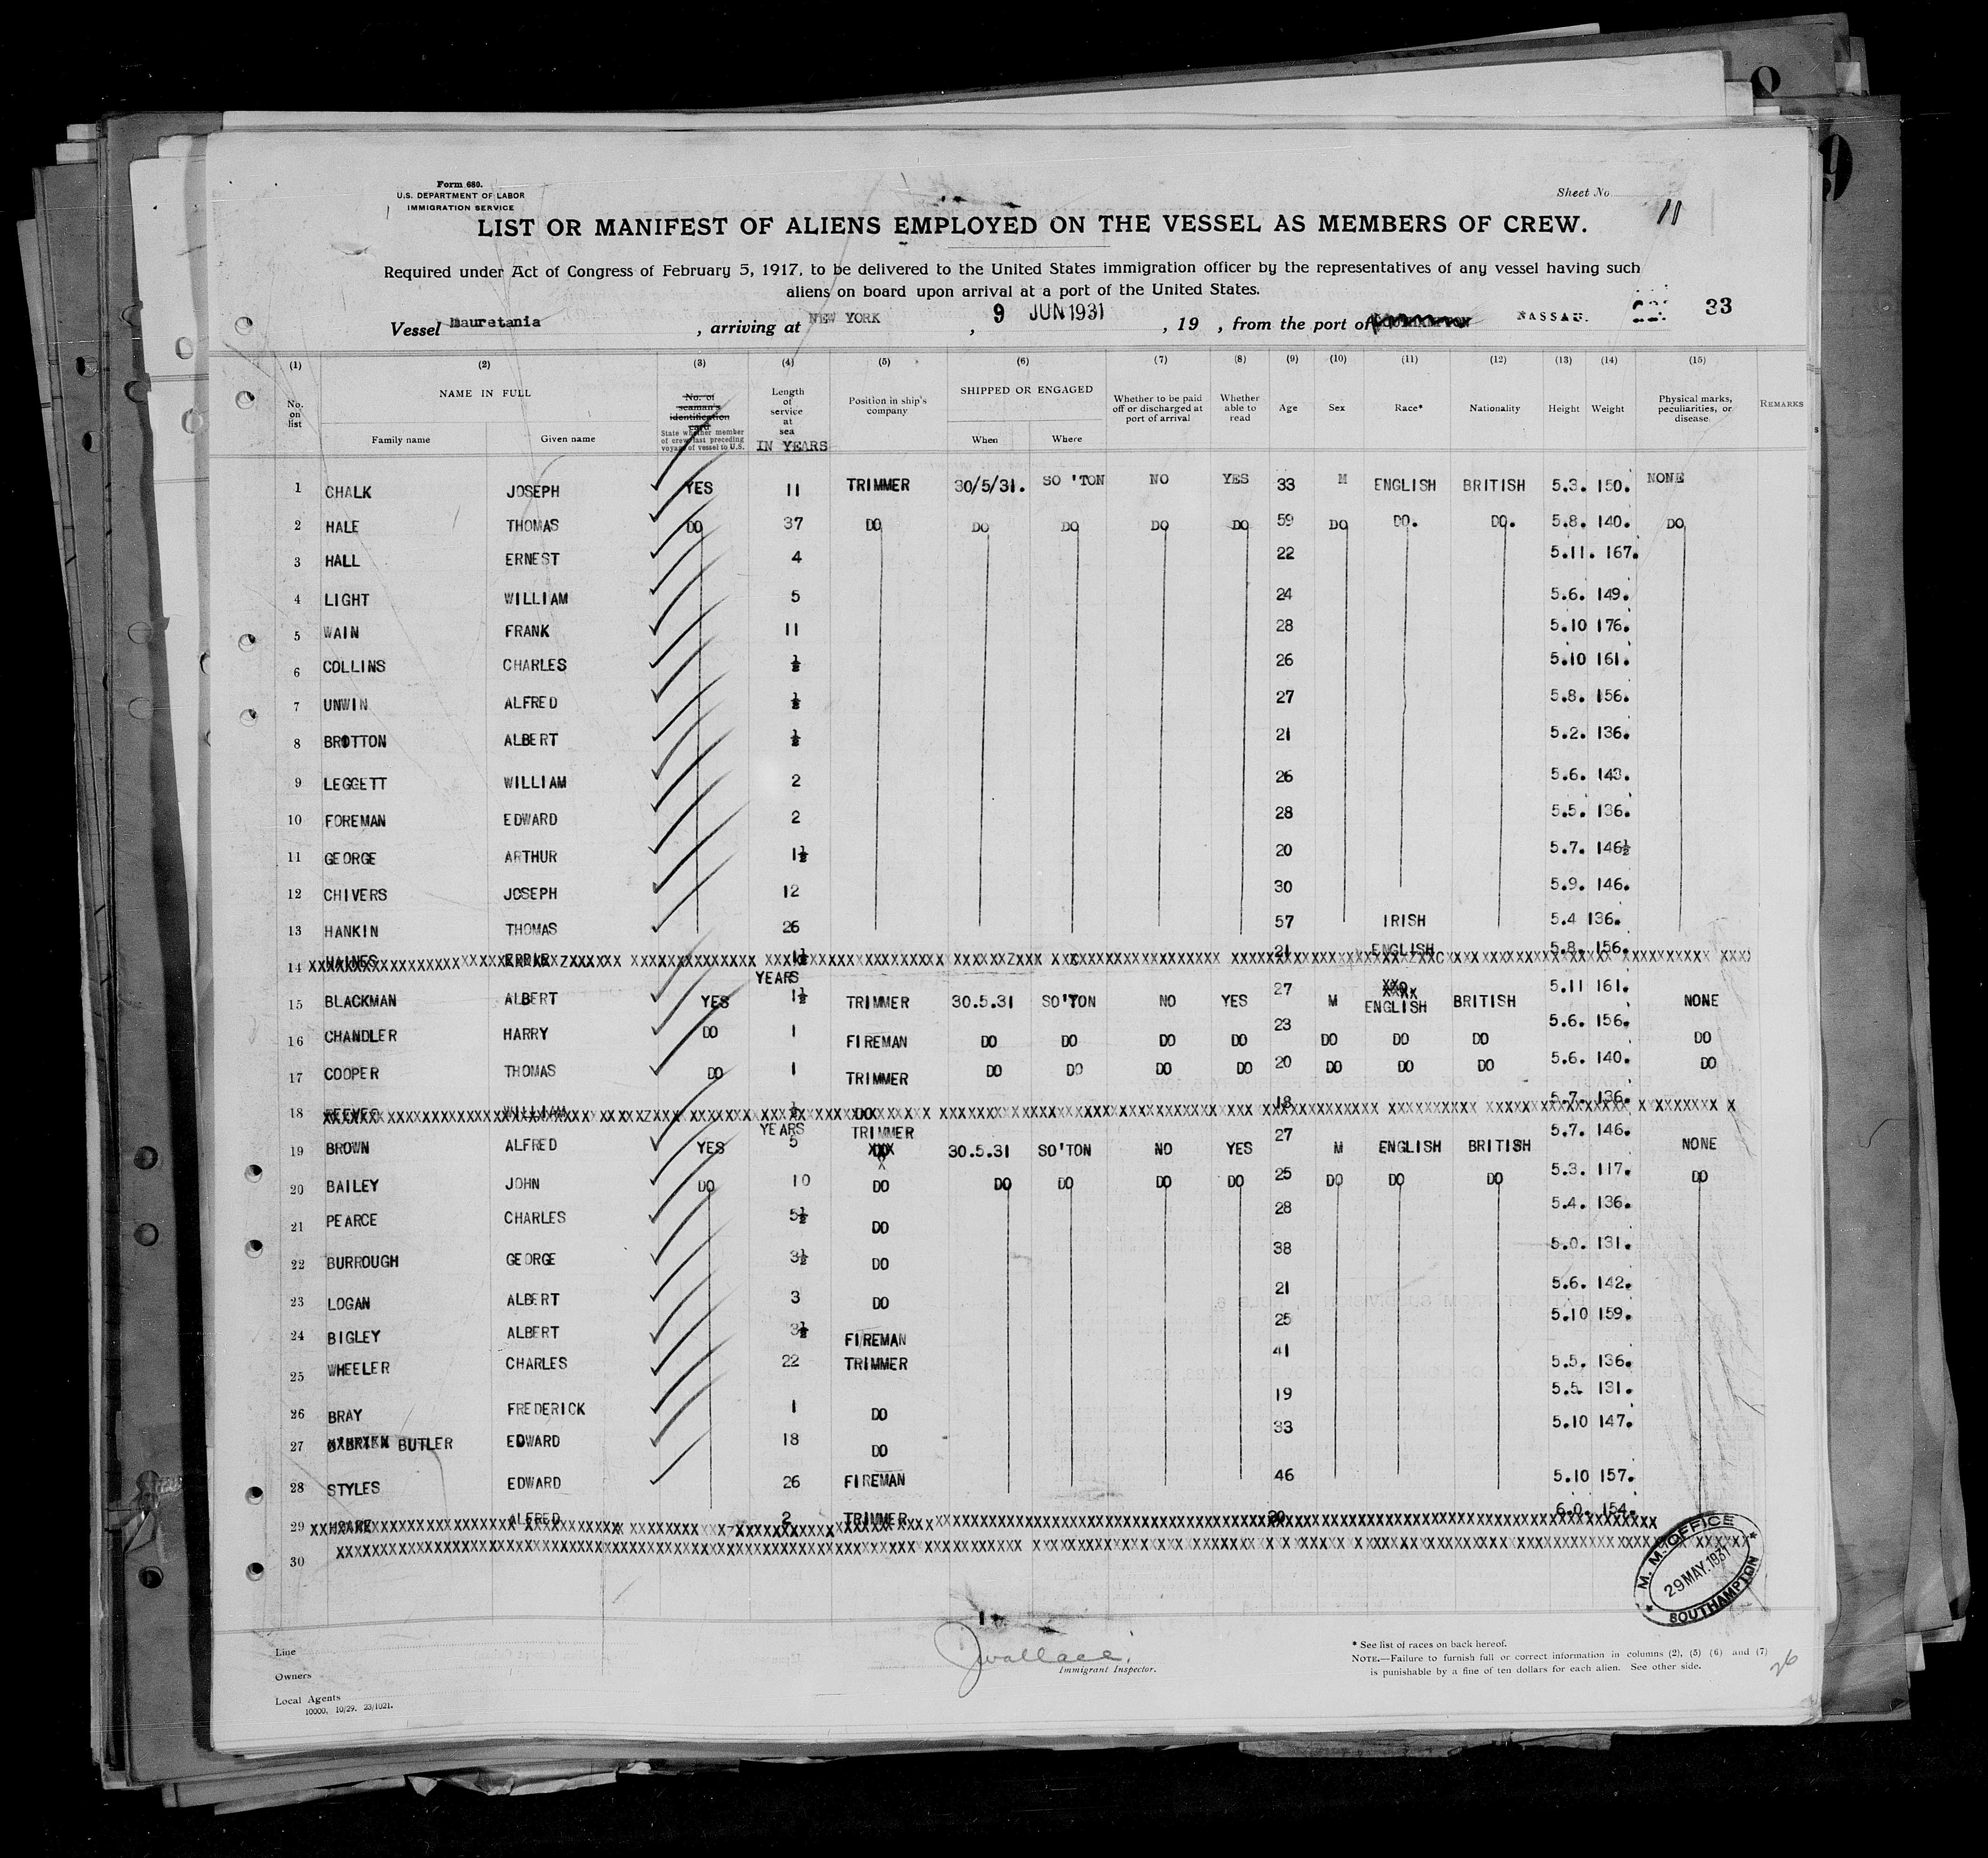 Form 680.
U.S. DEPARTMENT OF LABOR
IMMIGRATION SERVICE
Sheet No.
11
LIST OR MANIFEST OF ALIENS EMPLOYED ON THE VESSEL AS MEMBERS OF CREW.
Required under Act of Congress of February 5, 1917, to be delivered to the United States immigration officer by the representatives of any vessel having such
aliens on board upon arrival at a port of the United States.
Vessel Mauretania, arriving at NEW YORK, 9 JUN 1931, 19 , from the port of NASSAU. 33
(1) (2) (3) (4) (5) (6) (7) (8) (9) (10) (11) (12) (13) (14) (15)
No. on list NAME IN FULL Family name Given name No. of seaman's identification card State whether member of crew last preceding voyage of vessel to U.S. Length of service at sea IN YEARS Position in ship's company SHIPPED OR ENGAGED When Where Whether to be paid off or discharged at port of arrival Whether able to read Age Sex Race* Nationality Height Weight Physical marks, peculiarities, or disease REMARKS
1 CHALK JOSEPH YES 11 TRIMMER 30/5/31. SO'TON NO YES 33 M ENGLISH BRITISH 5.3. 150. NONE
2 HALE THOMAS DO 37 DO DO DO DO DO 59 DO DO. DO. 5.8. 140. DO
3 HALL ERNEST 4 22 5.11. 167.
4 LIGHT WILLIAM 5 24 5.6. 149.
5 WAIN FRANK 11 28 5.10 176.
6 COLLINS CHARLES ½ 26 5.10 161.
7 UNWIN ALFRED ½ 27 5.8. 156.
8 BROTTON ALBERT ½ 21 5.2. 136.
9 LEGGETT WILLIAM 2 26 5.6. 143.
10 FOREMAN EDWARD 2 28 5.5. 136.
11 GEORGE ARTHUR 1½ 20 5.7. 146½
12 CHIVERS JOSEPH 12 30 5.9. 146.
13 HANKIN THOMAS 26 57 IRISH 5.4 136.
14 HAINES 1½ 21 ENGLISH 5.8. 156.
YEARS
15 BLACKMAN ALBERT YES 1½ TRIMMER 30.5.31 SO'TON NO YES 27 M ENGLISH BRITISH 5.11 161. NONE
16 CHANDLER HARRY DO 1 FIREMAN DO DO DO DO 23 DO DO DO 5.6. 156. DO
17 COOPER THOMAS DO 1 TRIMMER DO DO DO DO 20 DO DO DO 5.6. 140. DO
18 REEVES WILLIAM ½ DO 18 5.7. 136.
YEARS TRIMMER
19 BROWN ALFRED YES 5 30.5.31 SO'TON NO YES 27 M ENGLISH BRITISH 5.7. 146. NONE
20 BAILEY JOHN DO 10 DO DO DO DO DO 25 DO DO DO 5.3. 117. DO
21 PEARCE CHARLES 5½ DO 28 5.4. 136.
22 BURROUGH GEORGE 3½ DO 38 5.0. 131.
23 LOGAN ALBERT 3 DO 21 5.6. 142.
24 BIGLEY ALBERT 3½ FIREMAN 25 5.10 159.
25 WHEELER CHARLES 22 TRIMMER 41 5.5. 136.
26 BRAY FREDERICK 1 DO 19 5.5. 131.
27 BUTLER EDWARD 18 DO 33 5.10 147.
28 STYLES EDWARD 26 FIREMAN 46 5.10 157.
29 ALFRED 2 TRIMMER 30 6.0. 154.
30
M. M. OFFICE
29 MAY. 1931
SOUTHAMPTON
Line
Owners
Local Agents
10000, 10/29. 23/1021.
J Wallace
Immigrant Inspector.
* See list of races on back hereof.
NOTE.—Failure to furnish full or correct information in columns (2), (5) (6) and (7)
is punishable by a fine of ten dollars for each alien. See other side.
26